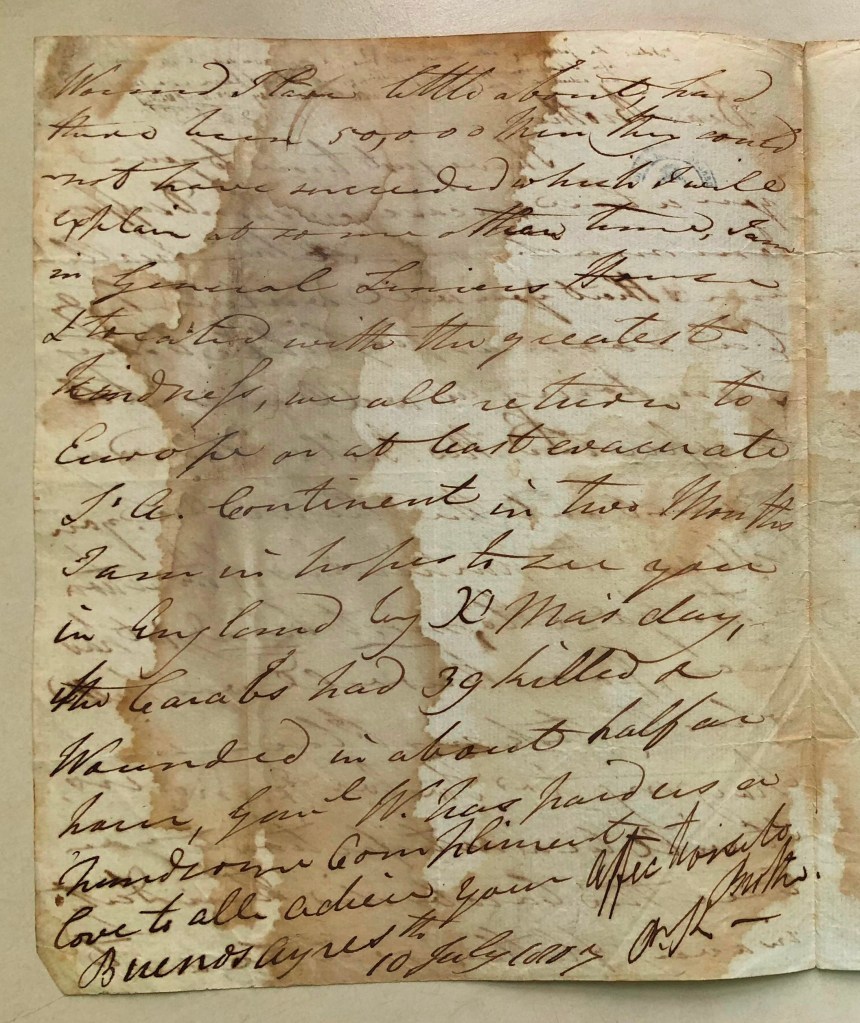 Wound I Care little about, had
there been 50,000 Men they could
not have succeeded which I will
explain at some other time, I am
in General Liniers House
& treated with the greatest
kindness, we all return to
Europe or at least evacuate
S. A. Continent in two Months
I am in hopes to see you
in England by X Mas day,
the Carabs had 39 killed &
Wounded in about half an
hour, Genl W. has paid us a
handsome Compliment
love to all adieu your affectionate
Buenos Ayres 10th July 1807